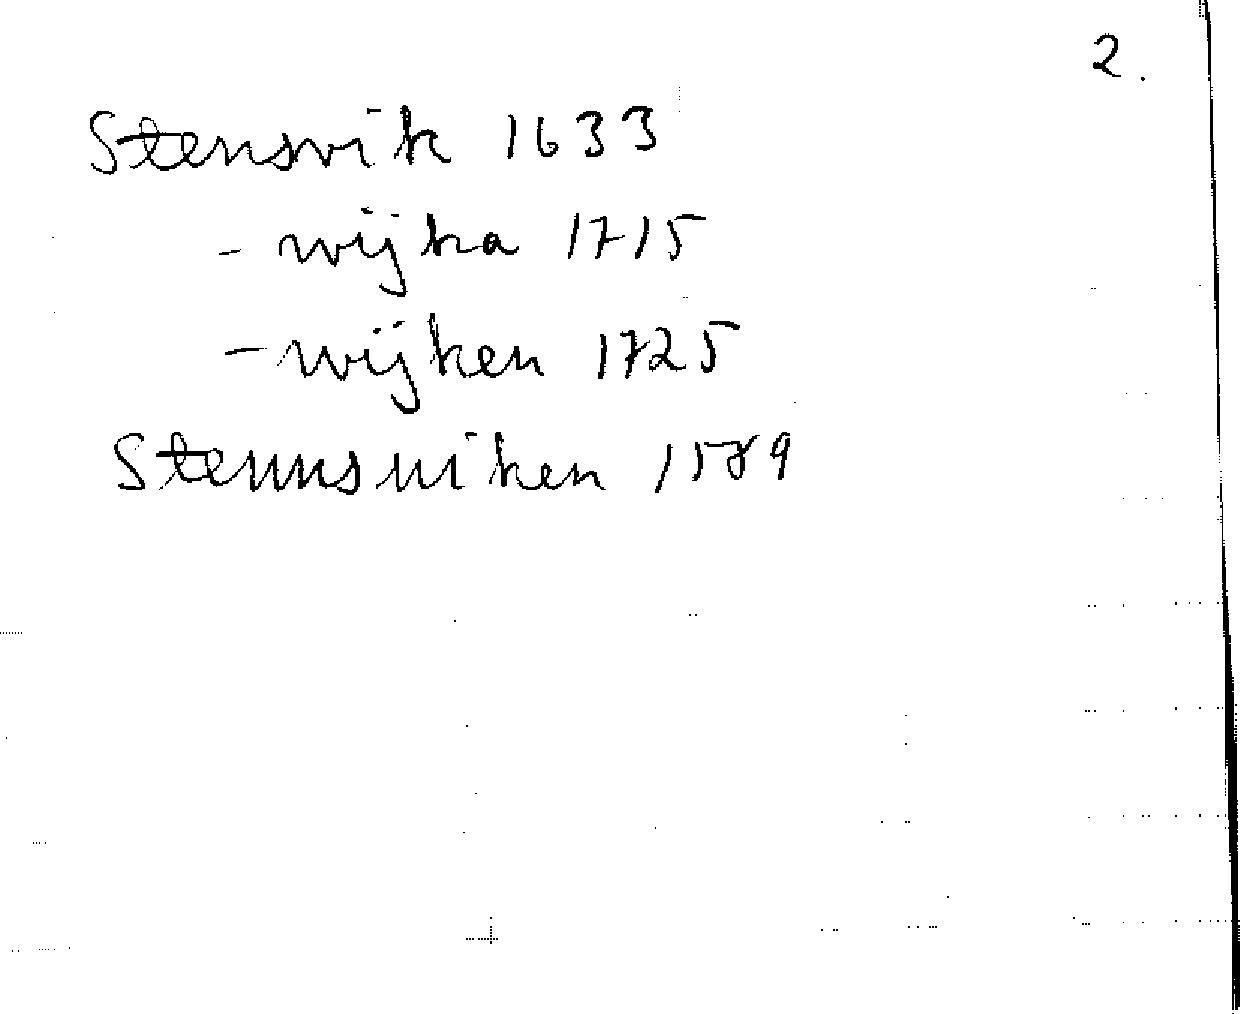 2.
Stensvik 1633
- wijka 1715
- wijken 1725
Stennsuiken 1589